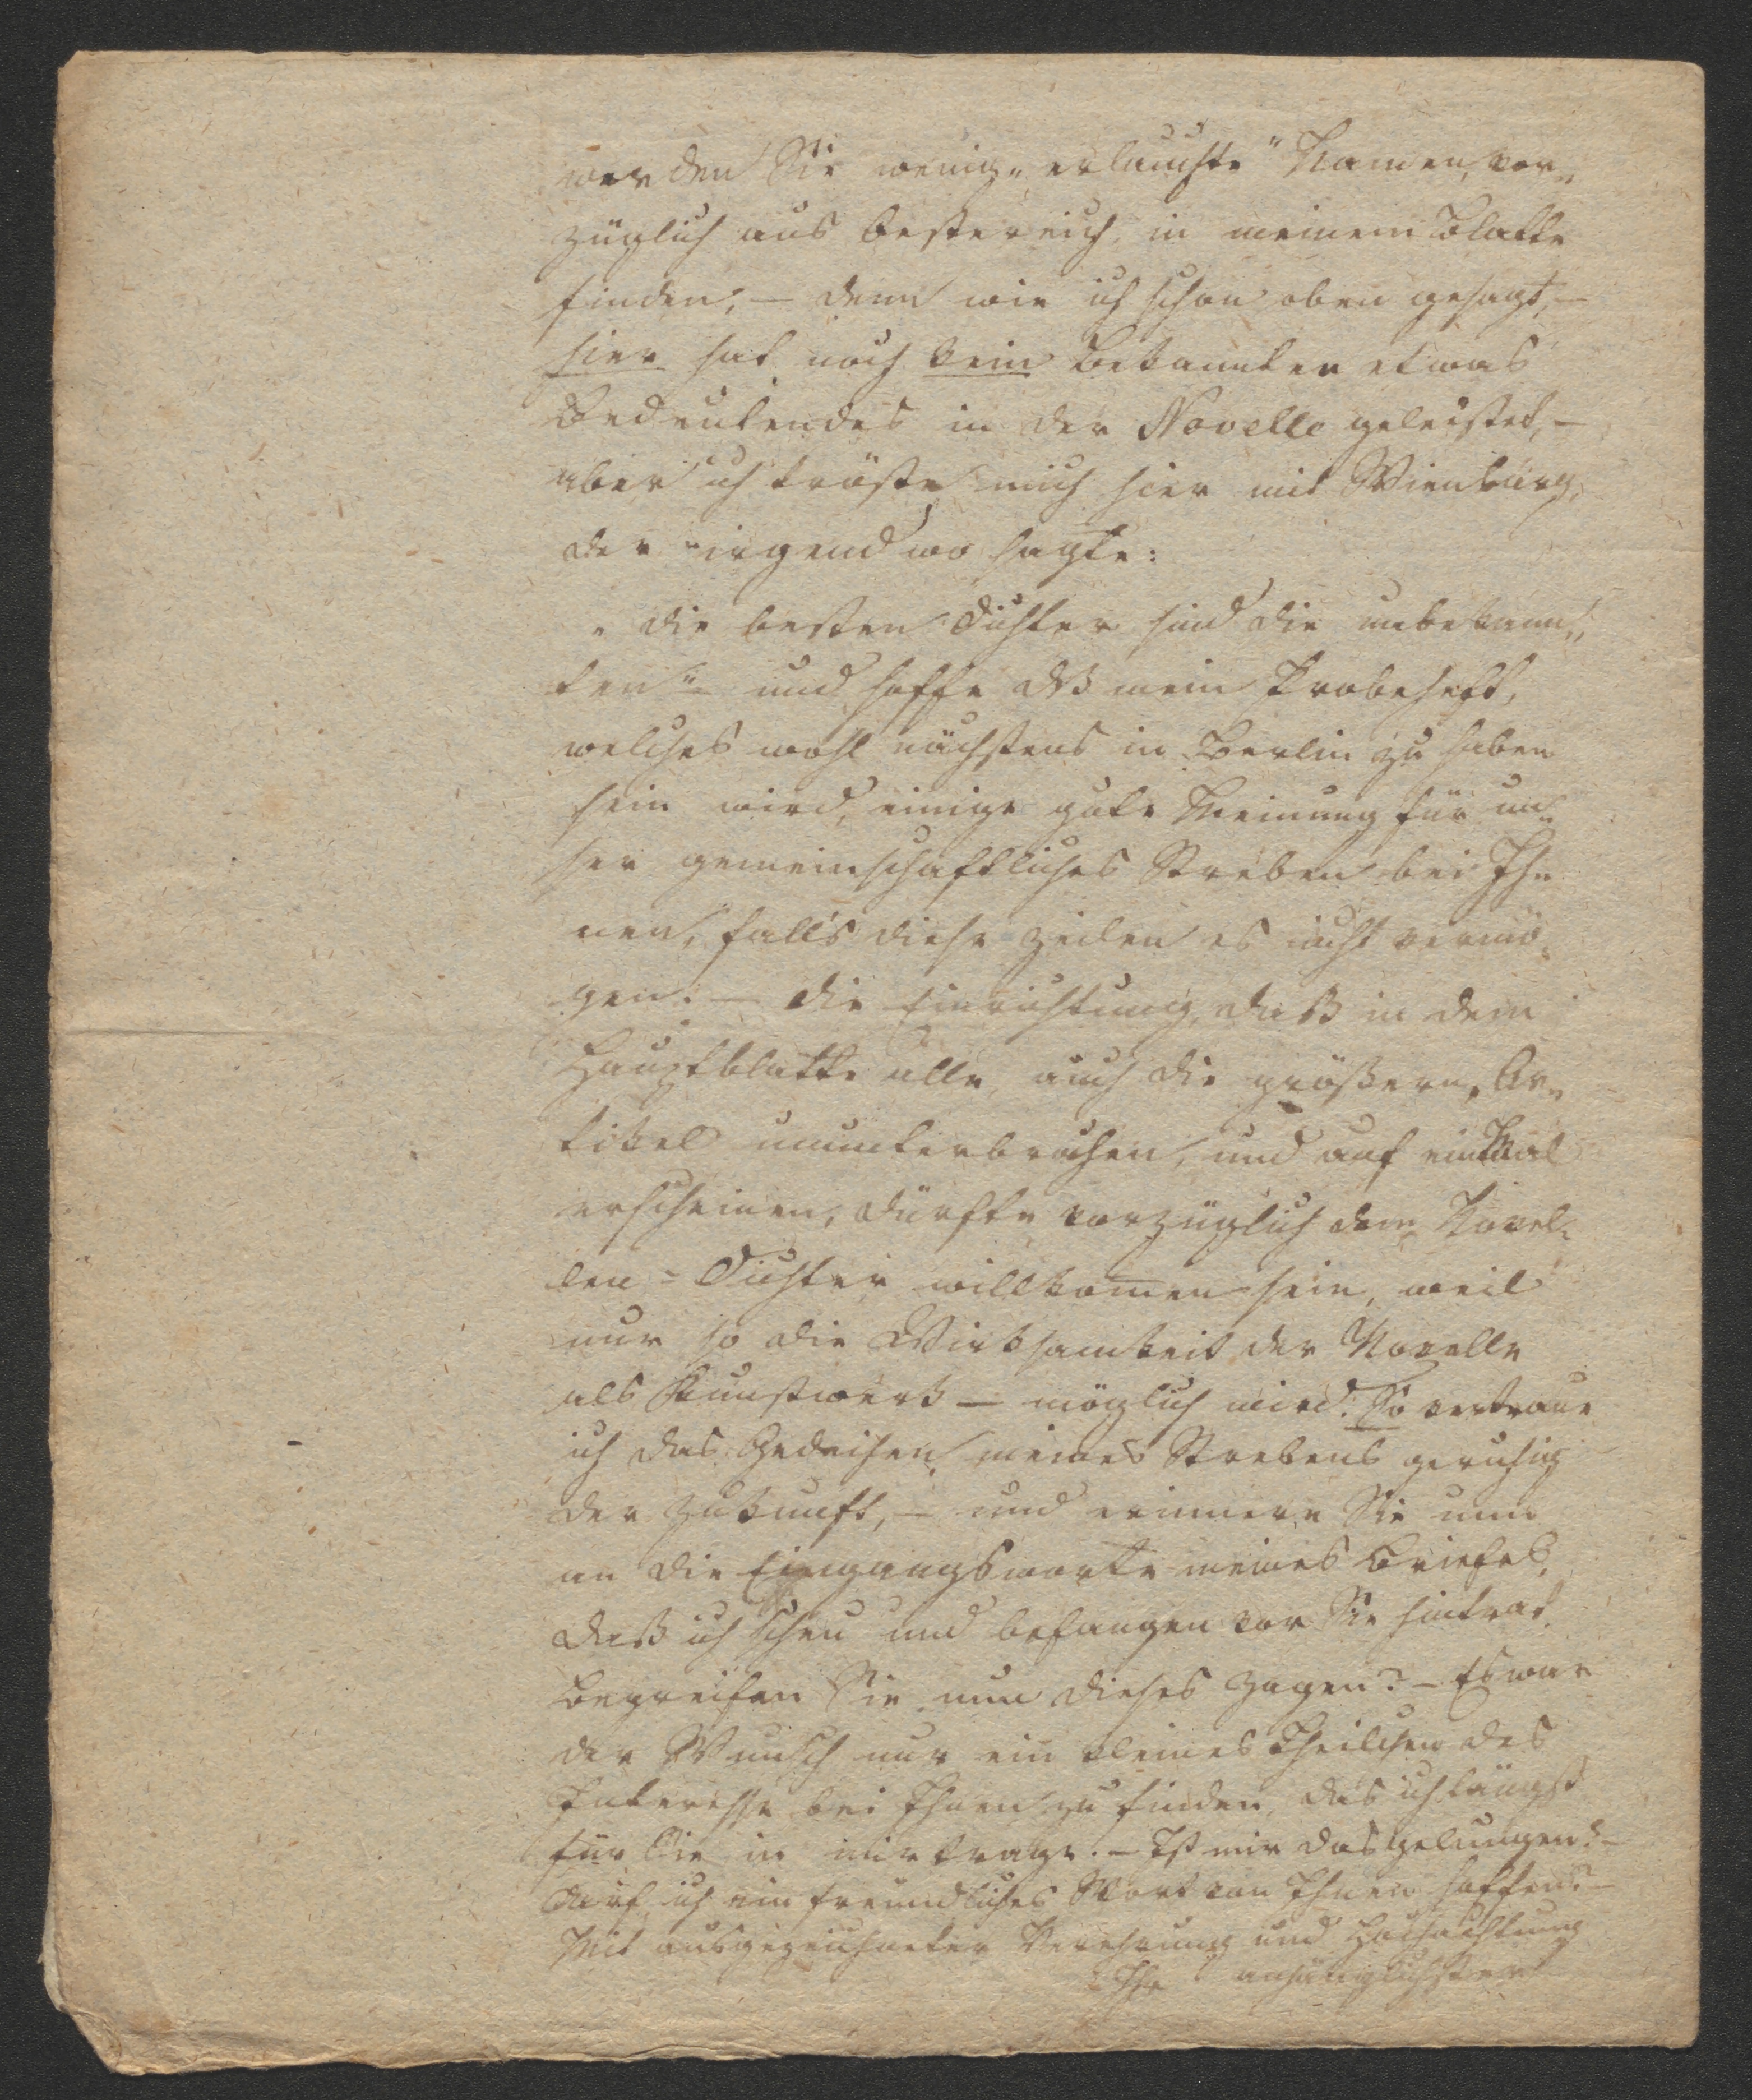 werden Sie wenig „erlauchte" Namen, vor„
züglich aus Oesterreich, in meinem Blatte
finden, – denn wie ich schon oben gesagt, –
hier hat noch kein Bekannter etwas
Bedeutendes in der Novelle geleistet, –
aber ich tröste mich hier mit Wienbarg,
der irgendwo sagte:
„die besten Dichter sind die unbekann„
ten" und hoffe dß mein Probeheft,
welches wohl nächstens in Berlin zu haben
sein wird, einige gute Meinung für un„
ser gemeinschaftliches Streben bei Ih„
nen, falls diese Zeilen es nicht vermö„
gen. – Die Einrichtung, daß in dem
Hauptblatte alle, auch die größern Ar„
tikel ununterbrochen, und auf ein Mal
erscheinen, dürfte vorzüglich dem Novel„
len-Dichter willkomen sein, weil
nur so die Wirksamkeit der Novelle
als Kunstwerk – möglich wird. So vertraue
ich das Gedeihen meines Strebens geruhig
der Zukunft, – und erinnere Sie nun
an die Eingangsworte meines Briefes,
daß ich scheu und befangen vor Sie hintrat.
Begreifen Sie nun dieses Zagen? – Es war
der Wunsch nur ein kleines Theilchen des
Interesse bei Ihnen zu finden, das ich längst
für Sie in mir trage. – Ist mir das gelungen? –
Darf ich ein freundliches Wort von Ihnen hoffen? –
Mit ausgezeichneter Verehrung und Hochachtung
Ihr anhänglichster